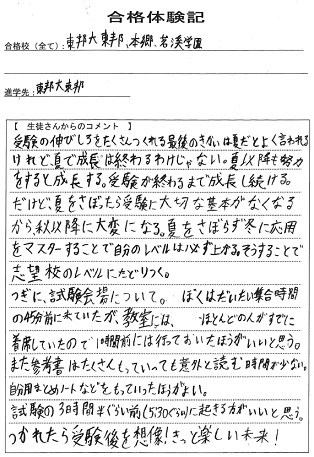 合格体験記
合格校（全て）：東邦大東邦、本郷、茗溪学園
進学先：東邦大東邦
【 生徒さんからのコメント 】
受験の伸びしろをたくさんつくれる最後のきかいは夏だとよく言われる
けれど、夏で成長は終わるわけじゃない。夏以降も努力
をすると成長する。受験が終わるまで成長し続ける。
だけど、夏をさぼったら受験に大切な基本がなくなる
から秋以降に大変になる。夏をさぼらず冬に応用
をマスターすることで自分のレベルは必ず上がる。そうすることで
志望校のレベルにたどりつく。
つぎに、試験会場について。ぼくはだいたい集合時間
の45分前に来ていたが、教室には、ほとんどの人がすでに
着席していたので1時間前には行っておいたほうがいいと思う。
また参考書はたくさんもっていっても意外と読む時間が少ない。
自分用まとめノートなどをもっていったほうがよい。
試験の3時間半ぐらい前(5:30ぐらい)に起きる方がいいと思う。
つかれたら受験後を想像！きっと楽しい未来！